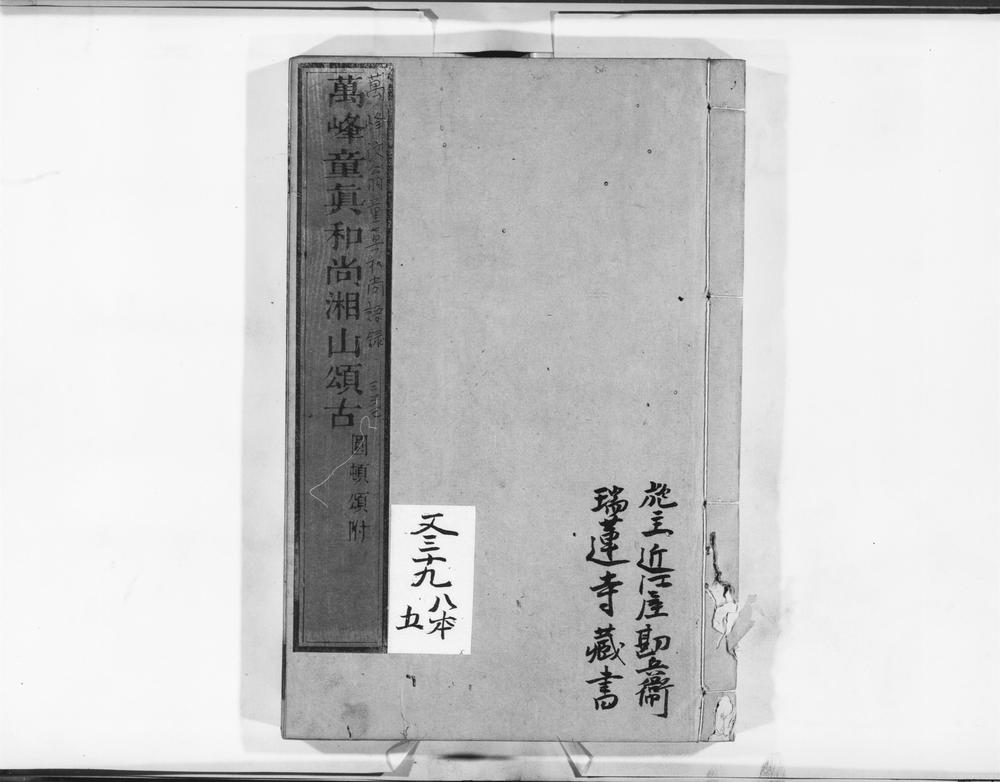 施主近江屋勘兵衞
瑞蓮寺藏書
又三十九
八本
五
萬峰童眞和尚語録
萬峰童眞和尚湘山頌古
圓頓頌附